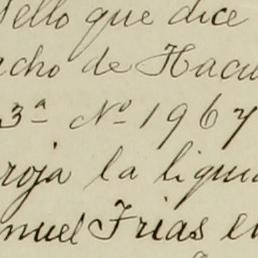 Sello que dice
acho de Hacie
3ª Nº 1967
roja la liqui
nuel Frias en